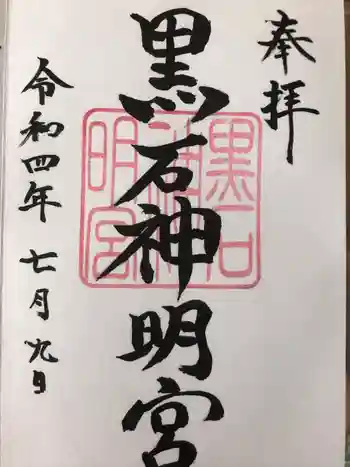 奉拝
黒石神明宮
令和四年七月九日
黒石
神
明宮